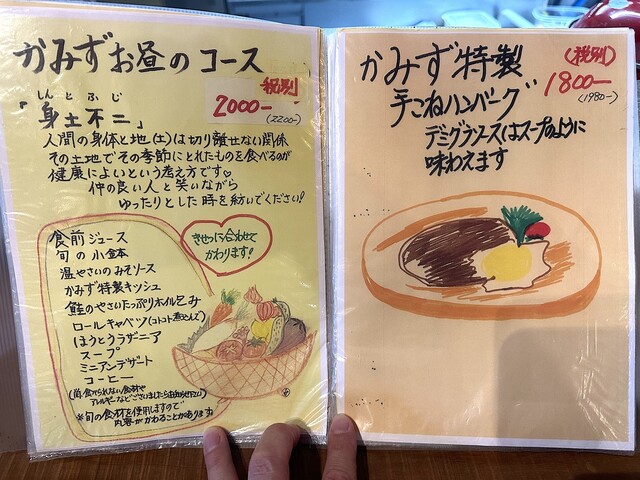 かみずお昼のコース
税別
2000-
(2200-)
しんとふじ
「身土不二」
人間の身体と地(土)は切り離せない関係
その土地でその季節にとれたものを食べるのが
健康によいという考え方です♡
仲の良い人と笑いながら
ゆったりとした時を紡いでください!
きせつに合わせて
かわります!
食前ジュース
旬の小鉢
温やさいのみそソース
かみず特製キッシュ
鮭のやさいたっぷりホイルむし
ロールキャベツ(コトコト煮こんだ)
ほうとうラザニア
スープ
ミニアンデザート
コーヒー
(尚、食べられない食材や
アレルギーなどございましたらお知らせ下さい)
*旬の食材を使用しますので
内容がかわることがあります
かみず特製
手こねハンバーグ
(税別)
1800-
(1980-)
デミグラソースはスープのように
味わえます